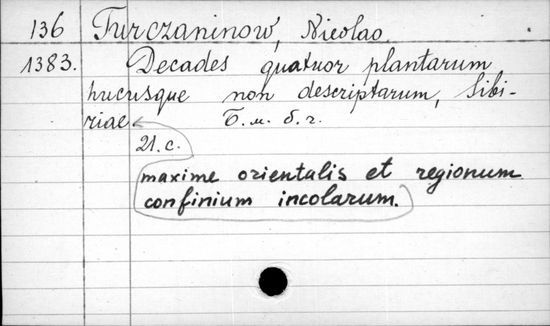 136 Turczaninow, Nicolao
1383. Decades quatuor plantarum
hucusque non descriptarum, Sibi-
riae Б. м. б. г.
21. с.
maxime orientalis et regionum
confinium incolarum.